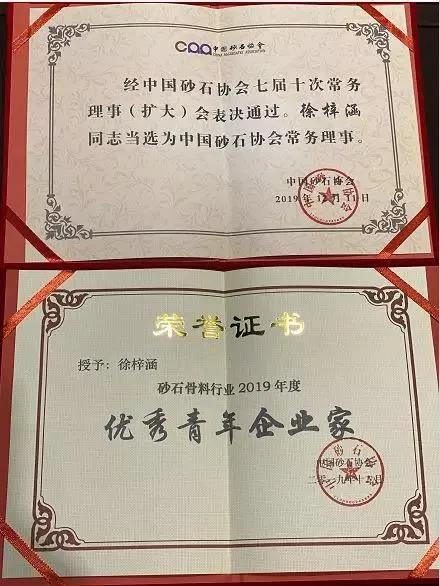 CAA 中国砂石协會
CHINA AGGREGATES ASSOCIATION
经中国砂石协会七届十次常务
理事（扩大）会表决通过。徐梓涵
同志当选为中国砂石协会常务理事。
中国砂石协会
2019年12月11日
荣誉证书
授予：徐梓涵
砂石骨料行业2019年度
优秀青年企业家
中国砂石协会
二零一九年十二月